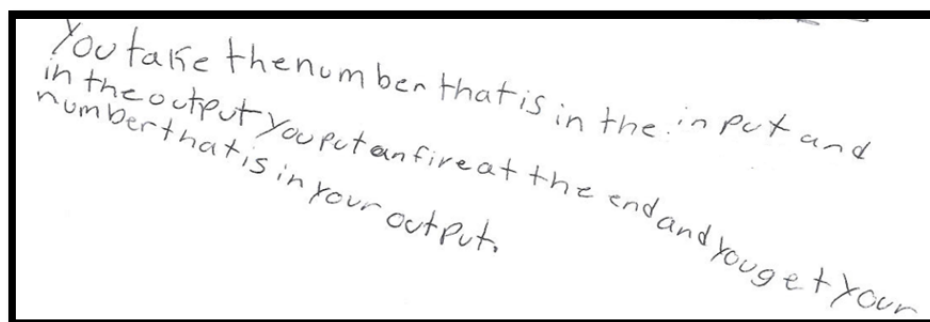 You take the number that is in the input and
in the output you put an fire at the end and you get your
number that is in your output.